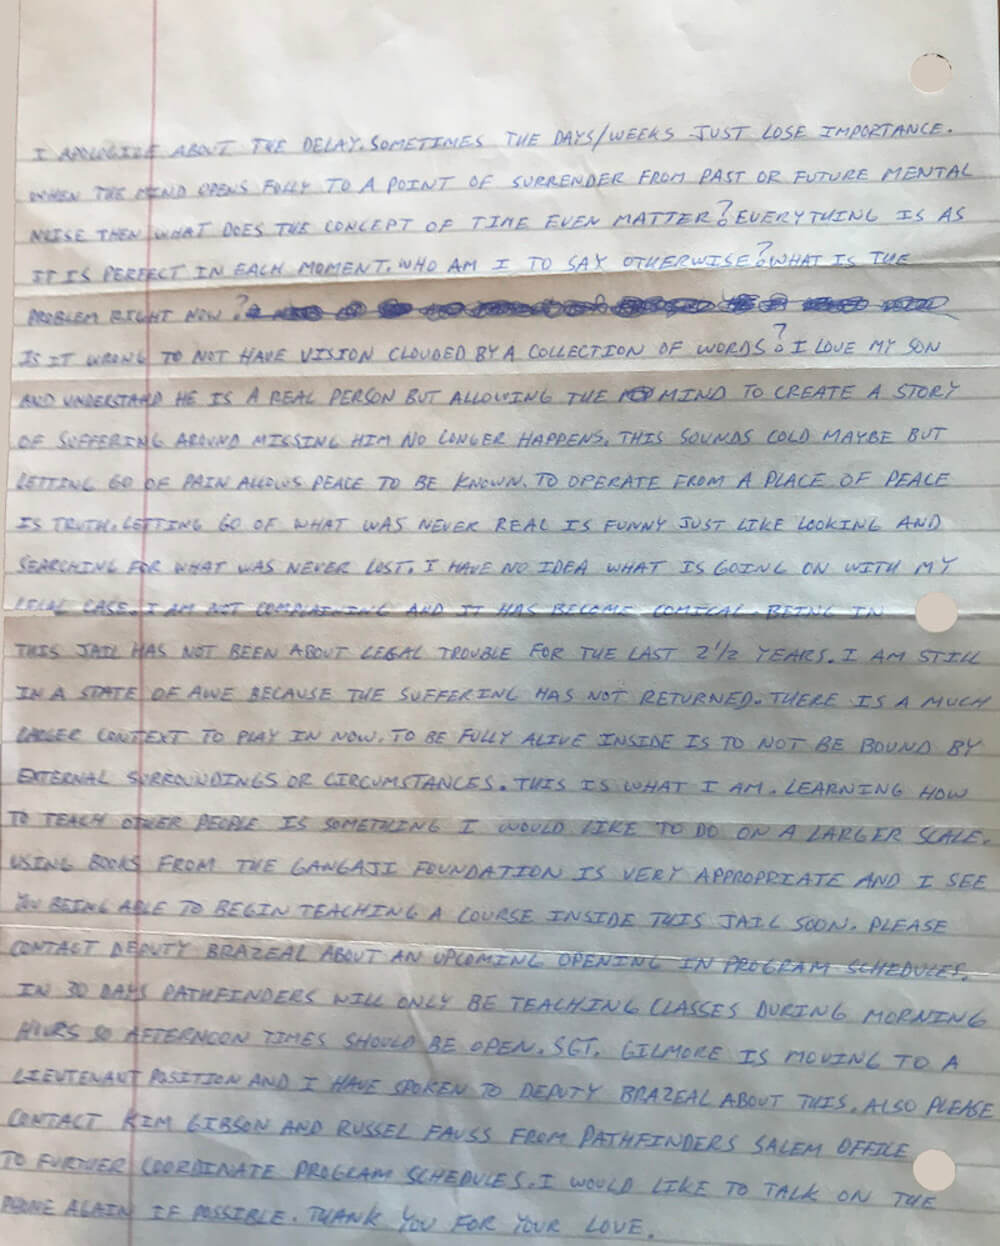 I APOLOGIZE ABOUT THE DELAY. SOMETIMES THE DAYS/WEEKS JUST LOSE IMPORTANCE.
WHEN THE MIND OPENS FULLY TO A POINT OF SURRENDER FROM PAST OR FUTURE MENTAL
NOISE THEN WHAT DOES THE CONCEPT OF TIME EVEN MATTER? EVERYTHING IS AS
IT IS PERFECT IN EACH MOMENT. WHO AM I TO SAY OTHERWISE? WHAT IS THE
PROBLEM RIGHT NOW?
IS IT WRONG TO NOT HAVE VISION CLOUDED BY A COLLECTION OF WORDS? I LOVE MY SON
AND UNDERSTAND HE IS A REAL PERSON BUT ALLOWING THE MIND TO CREATE A STORY
OF SUFFERING AROUND MISSING HIM NO LONGER HAPPENS. THIS SOUNDS COLD MAYBE BUT
LETTING GO OF PAIN ALLOWS PEACE TO BE KNOWN. TO OPERATE FROM A PLACE OF PEACE
IS TRUTH. LETTING GO OF WHAT WAS NEVER REAL IS FUNNY JUST LIKE LOOKING AND
SEARCHING FOR WHAT WAS NEVER LOST. I HAVE NO IDEA WHAT IS GOING ON WITH MY
LEGAL CASE. I AM NOT COMPLAINING AND IT HAS BECOME COMICAL. BEING IN
THIS JAIL HAS NOT BEEN ABOUT LEGAL TROUBLE FOR THE LAST 2 1/2 YEARS. I AM STILL
IN A STATE OF AWE BECAUSE THE SUFFERING HAS NOT RETURNED. THERE IS A MUCH
LARGER CONTEXT TO PLAY IN NOW. TO BE FULLY ALIVE INSIDE IS TO NOT BE BOUND BY
EXTERNAL SURROUNDINGS OR CIRCUMSTANCES. THIS IS WHAT I AM. LEARNING HOW
TO TEACH OTHER PEOPLE IS SOMETHING I WOULD LIKE TO DO ON A LARGER SCALE.
USING BOOKS FROM THE GANGAJI FOUNDATION IS VERY APPROPRIATE AND I SEE
YOU BEING ABLE TO BEGIN TEACHING A COURSE INSIDE THIS JAIL SOON. PLEASE
CONTACT DEPUTY BRAZEAL ABOUT AN UPCOMING OPENING IN PROGRAM SCHEDULES.
IN 30 DAYS PATHFINDERS WILL ONLY BE TEACHING CLASSES DURING MORNING
HOURS SO AFTERNOON TIMES SHOULD BE OPEN. SGT. GILMORE IS MOVING TO A
LIEUTENANT POSITION AND I HAVE SPOKEN TO DEPUTY BRAZEAL ABOUT THIS. ALSO PLEASE
CONTACT KIM GIBSON AND RUSSEL FAUSS FROM PATHFINDERS SALEM OFFICE
TO FURTHER COORDINATE PROGRAM SCHEDULES. I WOULD LIKE TO TALK ON THE
PHONE AGAIN IF POSSIBLE. THANK YOU FOR YOUR LOVE.